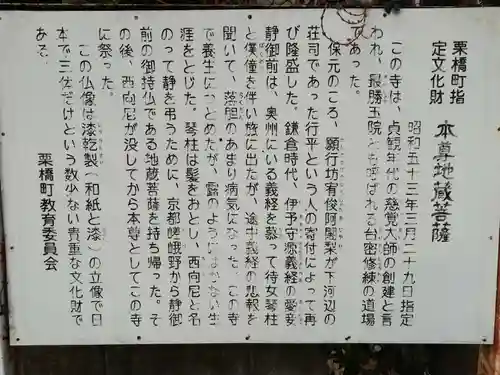 栗橋町指
定文化財
本尊地蔵菩薩
昭和五十三年三月二十九日指定
この寺は、貞観年代の慈覚大師の創建と言
われ、最勝王院とも呼ばれる台密修練の道場
であった。
保元のころ、願行坊宥俊阿闍梨が下河辺の
荘司であった行平という人の寄付によって再
び隆盛した。鎌倉時代、伊予守源義経の愛妾
静御前は、奥州にいる義経を慕って侍女琴柱
と僕僮を伴い旅に出たが、途中義経の悲報を
聞いて、落胆のあまり病気になった。この寺
で養生につとめたが、露のようにはかない生
涯をとじた。琴柱は髪をおとし、西向尼と名
のって静を弔うために、京都嵯峨野から静御
前の御持仏である地蔵菩薩を持ち帰った。そ
の後、西向尼が没してから本尊としてこの寺
に祭った。
この仏像は漆乾製(和紙と漆)の立像で日
本で三体だけという数少ない貴重な文化財で
ある。
栗橋町教育委員会